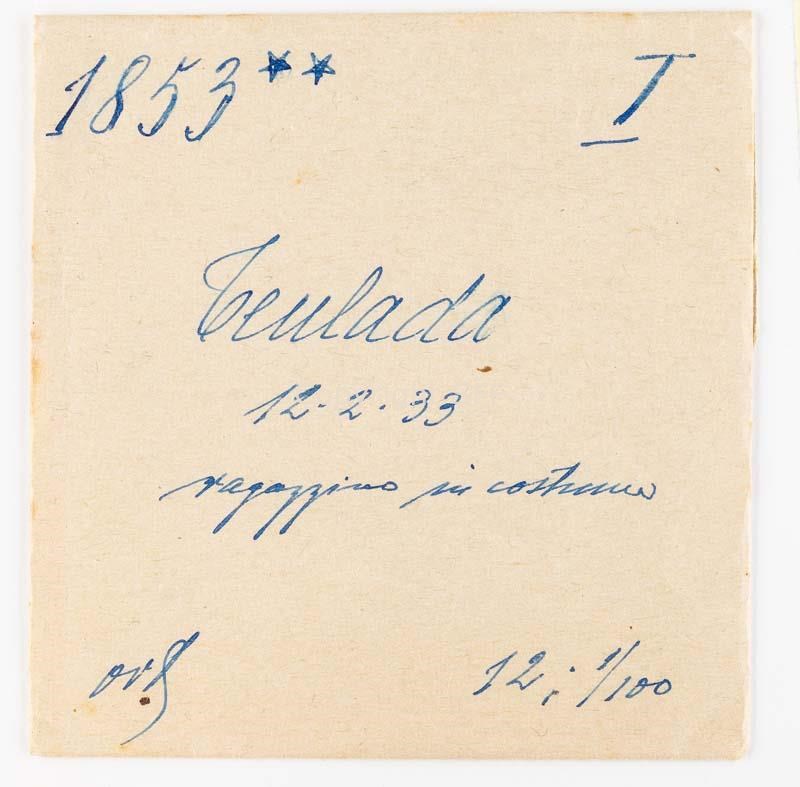 1853** I
Teulada
12-2-33
ragazzino in costume
12; 1/100